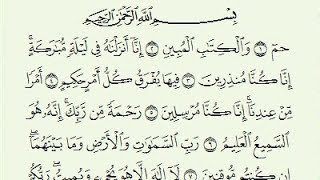 بِسْمِ ٱللَّهِ ٱلرَّحْمَٰنِ ٱلرَّحِيمِ
حمٓ ۝١ وَٱلْكِتَٰبِ ٱلْمُبِينِ ۝٢ إِنَّآ أَنزَلْنَٰهُ فِى لَيْلَةٍ مُّبَٰرَكَةٍ ۚ
إِنَّا كُنَّا مُنذِرِينَ ۝٣ فِيهَا يُفْرَقُ كُلُّ أَمْرٍ حَكِيمٍ ۝٤ أَمْرًا
مِّنْ عِندِنَآ ۚ إِنَّا كُنَّا مُرْسِلِينَ ۝٥ رَحْمَةً مِّن رَّبِّكَ ۚ إِنَّهُۥ هُوَ
ٱلسَّمِيعُ ٱلْعَلِيمُ ۝٦ رَبِّ ٱلسَّمَٰوَٰتِ وَٱلْأَرْضِ وَمَا بَيْنَهُمَآ ۖ
إِن كُنتُم مُّوقِنِينَ ۝٧ لَآ إِلَٰهَ إِلَّا هُوَ يُحْىِۦ وَيُمِيتُ ۖ رَبُّكُمْ